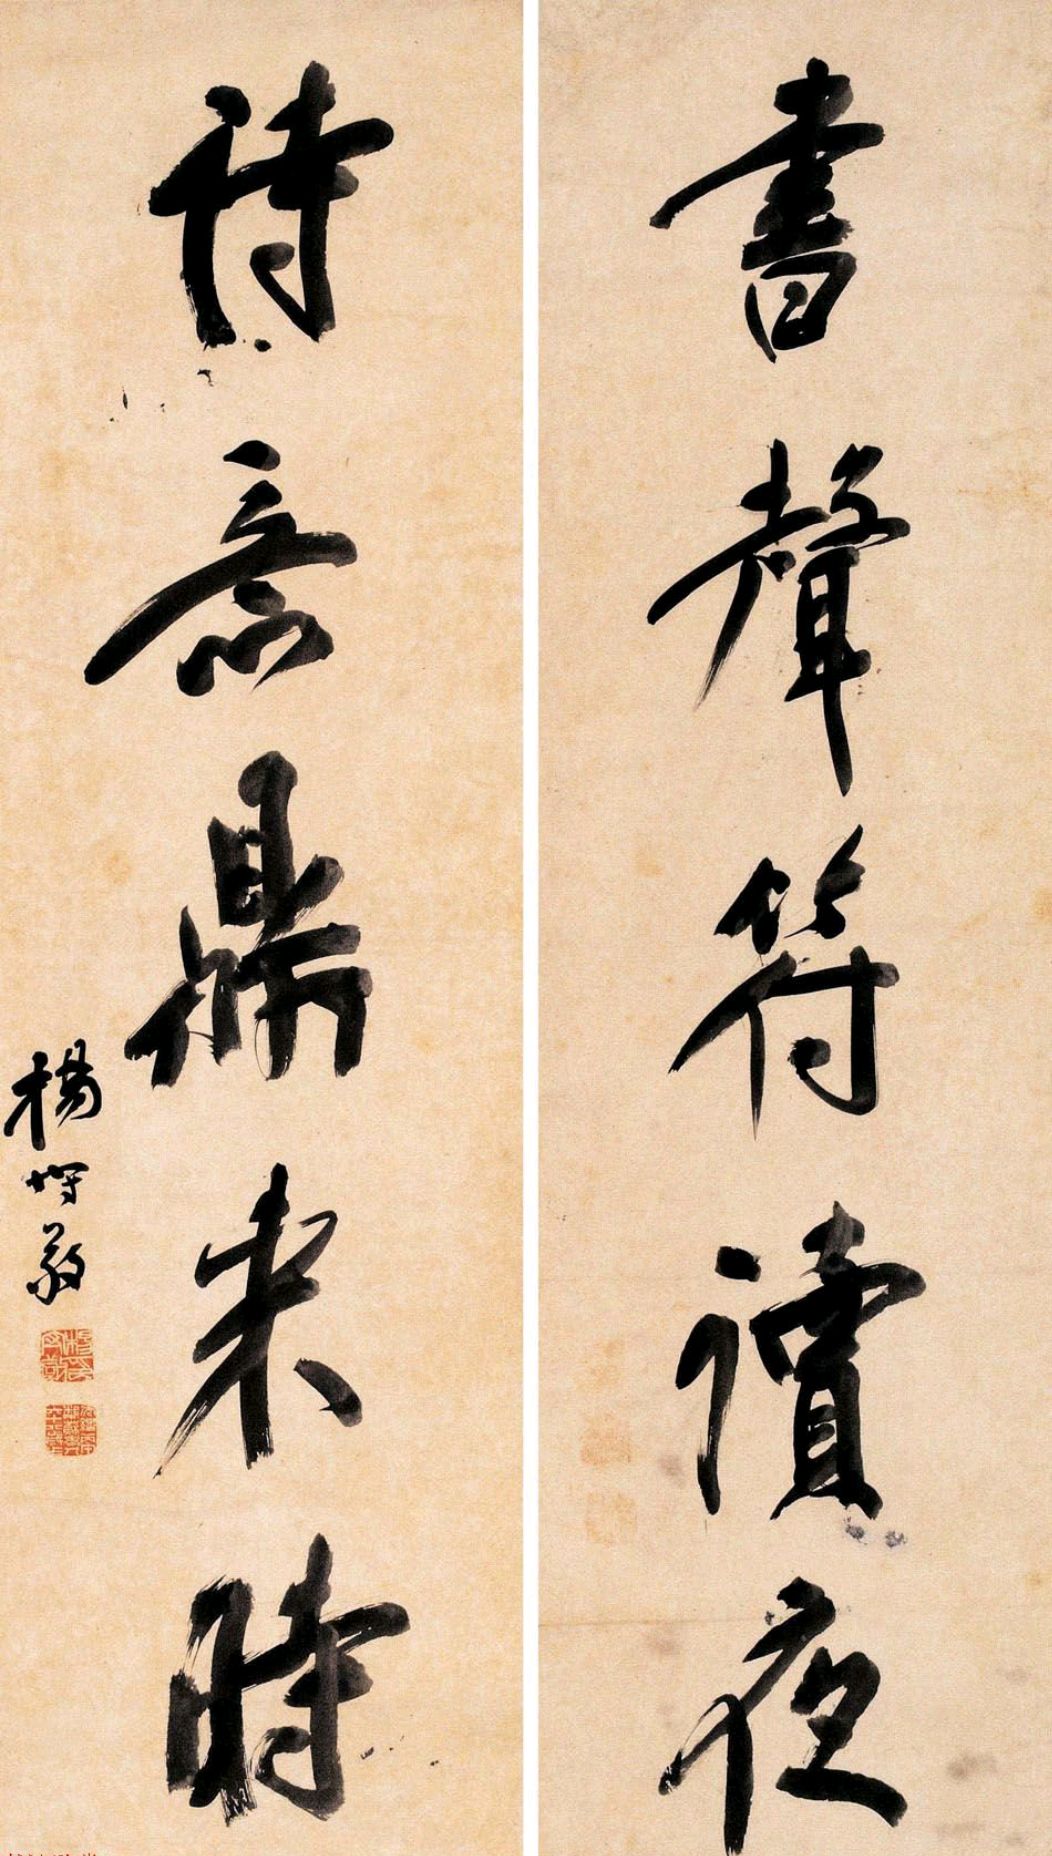 書聲符讀夜
詩意鼎来時
楊守敬